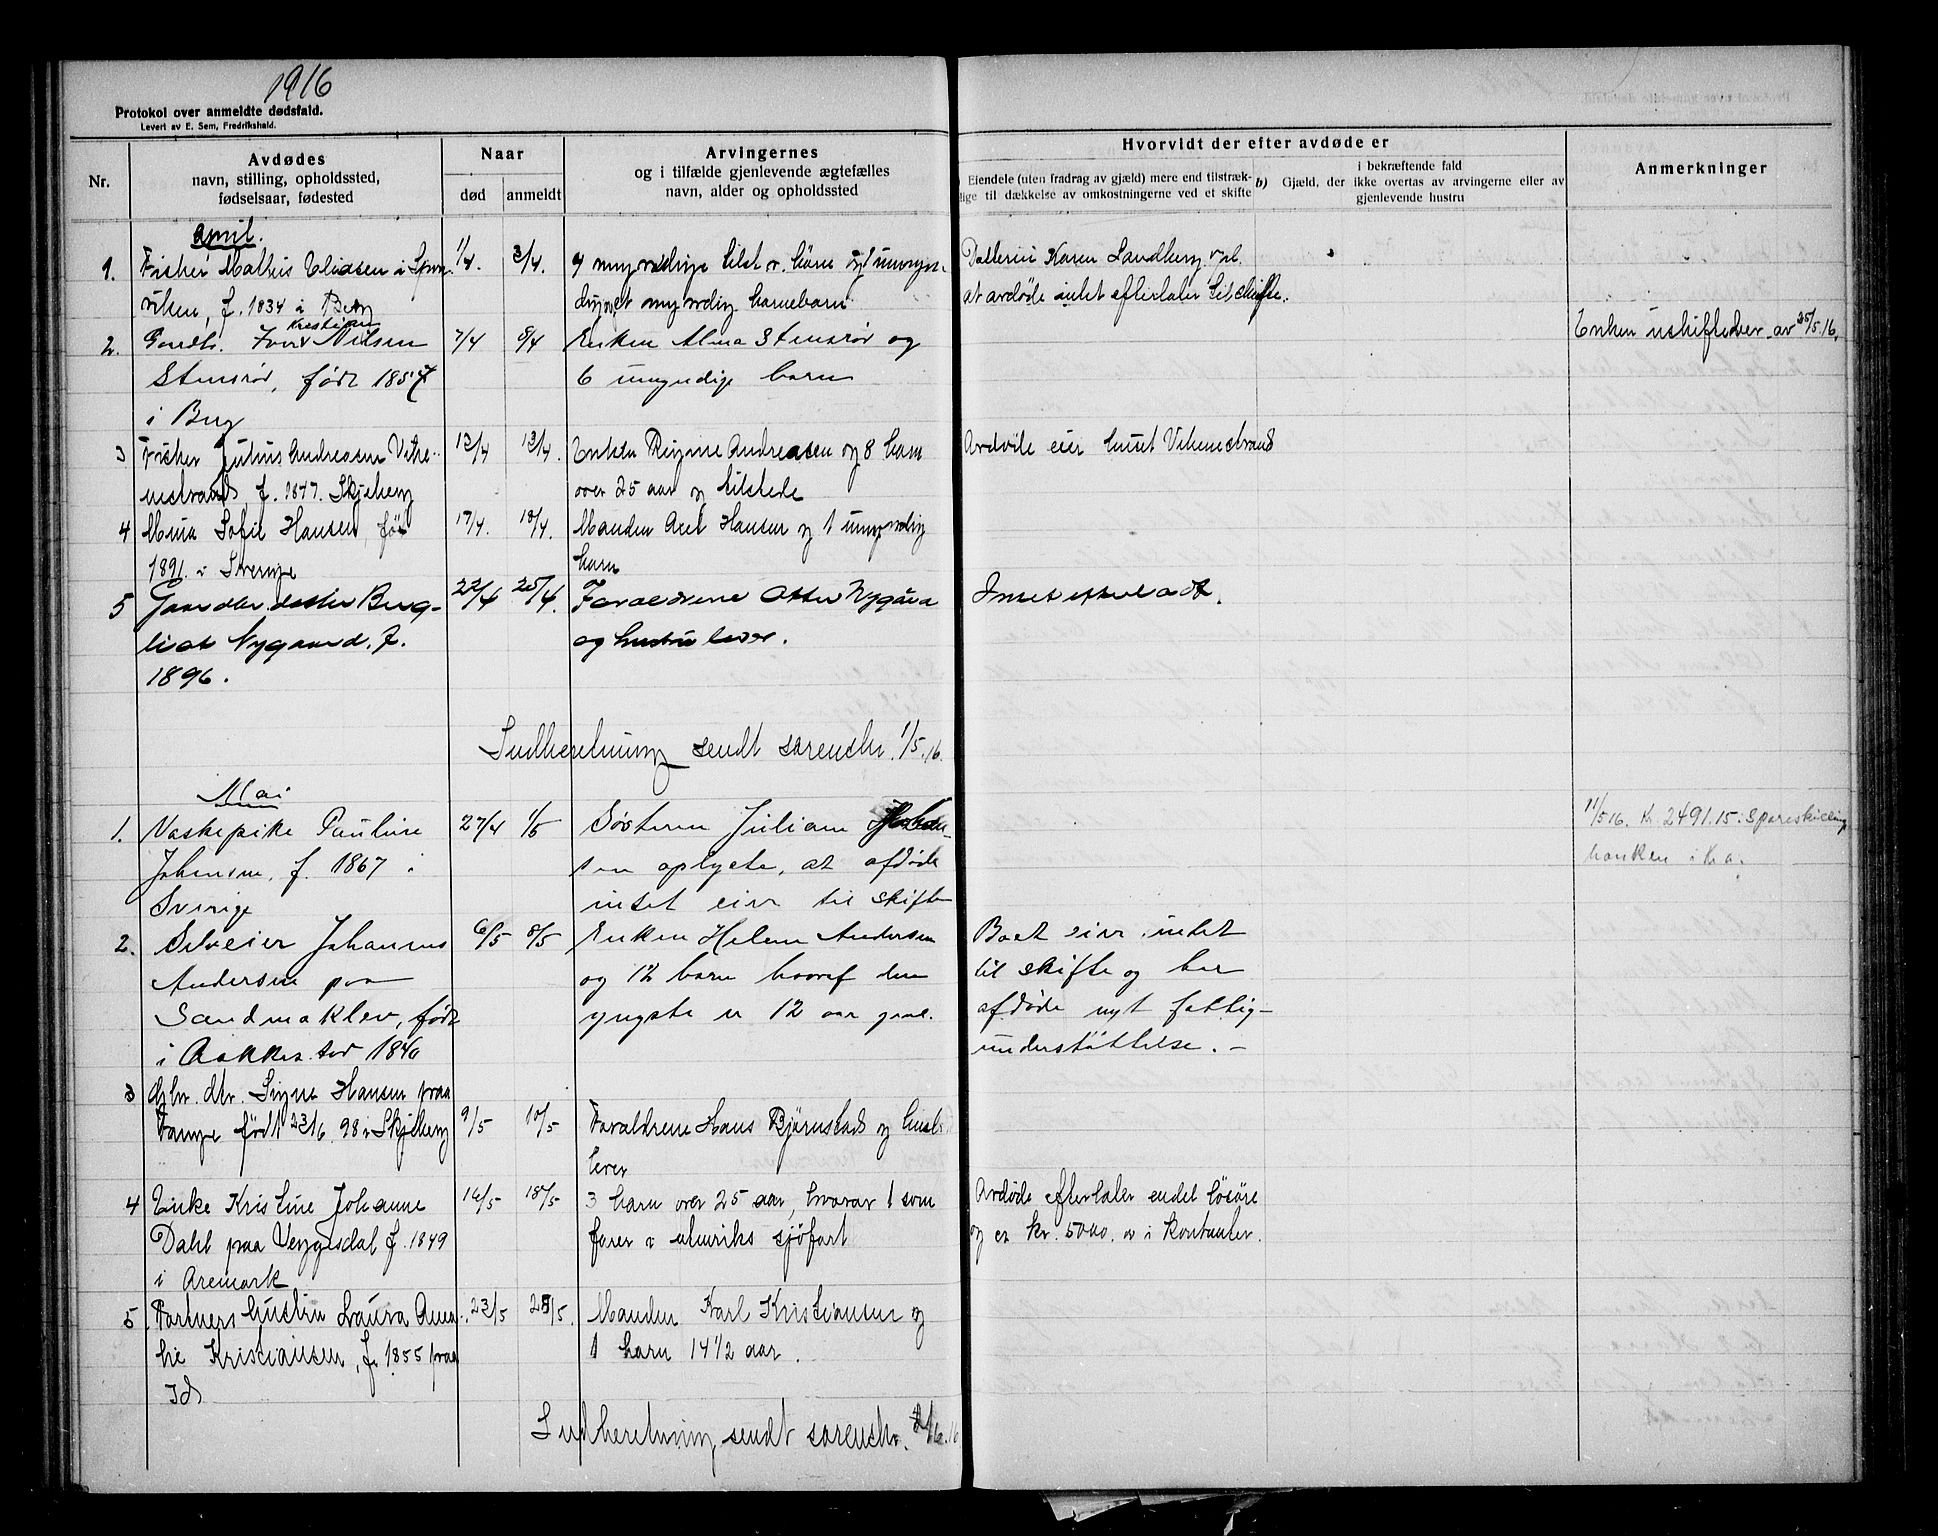 1916
Protokol over anmeldte dødsfald.
Levert av E. Sem, Fredrikshald.
Nr.
Avdødes
navn, stilling, opholdssted,
fødselsaar, fødested
Naar
død
anmeldt
Arvingernes
og i tilfælde gjenlevende ægtefælles
navn, alder og opholdssted
Hvorvidt der efter avdøde er
Eiendele (uten fradrag av gjæld) mere end tilstræk-
lige til dækkelse av omkostningerne ved et skifte
b) Gjæld, der
i bekræftende fald
ikke overtas av arvingerne eller av
gjenlevende hustru
Anmerkninger
April.
1. Fisker Mathis Eliasen i Spon- 1/4. 3/4. 4 myndige tilst. v. børn og 1 umyn-
viken, f. 1834 i Berg
dig myndig barnebarn
Datteren Karen Sandberg
at avdøde intet efterlater til skifte.
2. Gaardbr. Iver Kristian Nilsen 7/4 8/4 Enken Alma Stensrød og
Stensrød, født 1857
6 umyndige barn
i Berg
Enken uskiftebev. av 25/5.16.
3 Fisker Julius Andreasen Vike- 12/4 13/4. Enken Regine Andreasen og 8 barn
nestrand, f. 1847. Skjeberg
over 25 aar og tilstede
Avdøde eier huset Vikenestrand
4 Mina Sofie Hansen, født 17/4. 18/4. Manden Axel Hansen og 1 umyndig
1891. i Sverige
barn
5 Gaardbr. datter Berg- 22/4 25/4. Forældrene Otter Nygård
liot Nygaard. f.
og hustru lever.
1896.
Intet efterladt.
Indberetning sendt sorenskr. 1/5.16.
Mai
1. Vaskepike Pauline 27/4 1/5 Søsteren Juliane
Johansen, f. 1867 i
sen oplyste, at afdøde
Sverige
intet eier til skifte
11/5 16. Kr. 2491.15 i Spareskilling
banken i Kra.
2. Selveier Johannes 6/5 8/5 Enken Helene Andersen
Andersen paa
og 12 barn hvoraf den
Sandmaklev, født
yngste er 12 aar gml.
i Aakkes tad 1840
Boet eier intet
til skifte og har
afdøde nyt fattig-
understøttelse. —
3 Gbr. dtr. Signe Hansen paa
Tange født 23/6 98 i Skjeberg 9/5 10/5 Forældrene Hans Bjørnstad og hustru
lever
4 Enke Kristine Johanne 16/5 18/5 3 barn over 25 aar, hvorav 1 som
Dahl paa Veggesdal f. 1849
farer i utenriks sjøfart
i Aremark
Avdøde efterlater endel løsøre
og ca kr. 5000. oo i kontanter.
5. Portners hustru Laura Ama- 23/5 25/5. Manden Karl Kristiansen og
lie Kristiansen, f. 1855 paa
1 barn 14 1/2 aar.
Id
Indberetning sendt sorenskr. 2/6.16